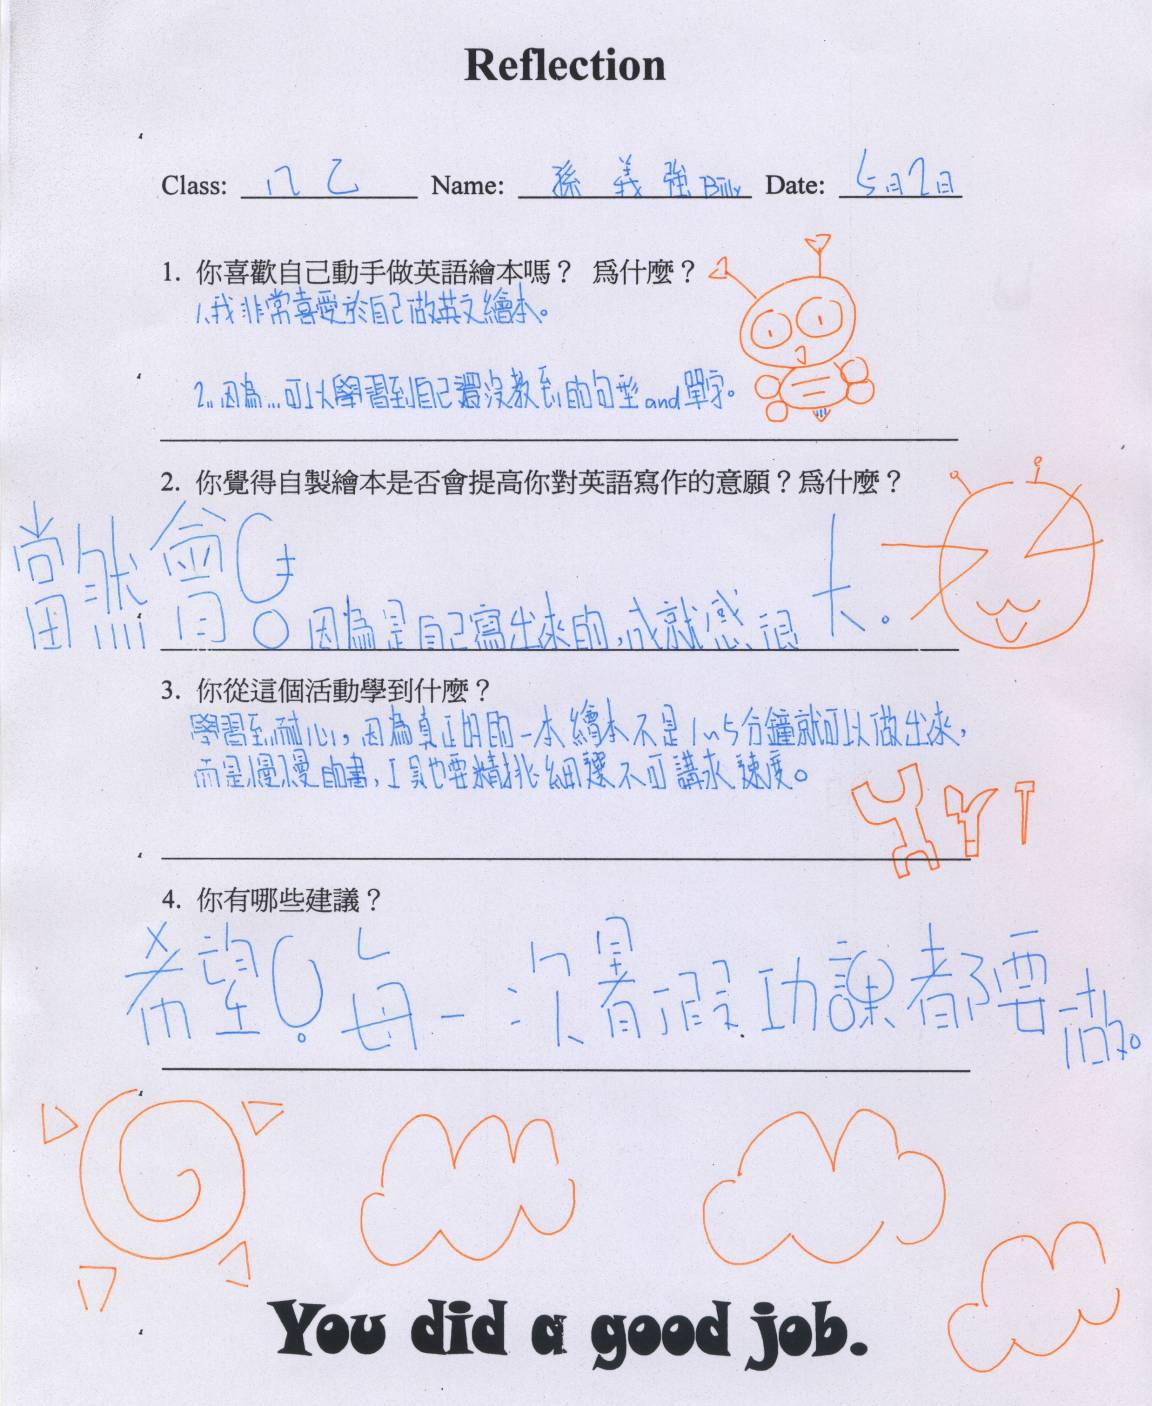 Reflection
Class: 八乙 Name: 孫義強 Billy Date: 5月2日
1. 你喜歡自己動手做英語繪本嗎? 爲什麼?
1.我非常喜愛於自己做英文繪本。
2.因為...可以學習到自己還沒教到的句型and單字。
2. 你覺得自製繪本是否會提高你對英語寫作的意願?爲什麼?
當然會!因為是自己寫出來的,成就感很大。
3. 你從這個活動學到什麼?
學習到耐心,因為真正的一本繪本不是1~5分鐘就可以做出來,
而是慢慢的畫,工具也要精挑細選不可講求速度。
4. 你有哪些建議?
希望!每一次暑假功課都要做。
You did a good job.